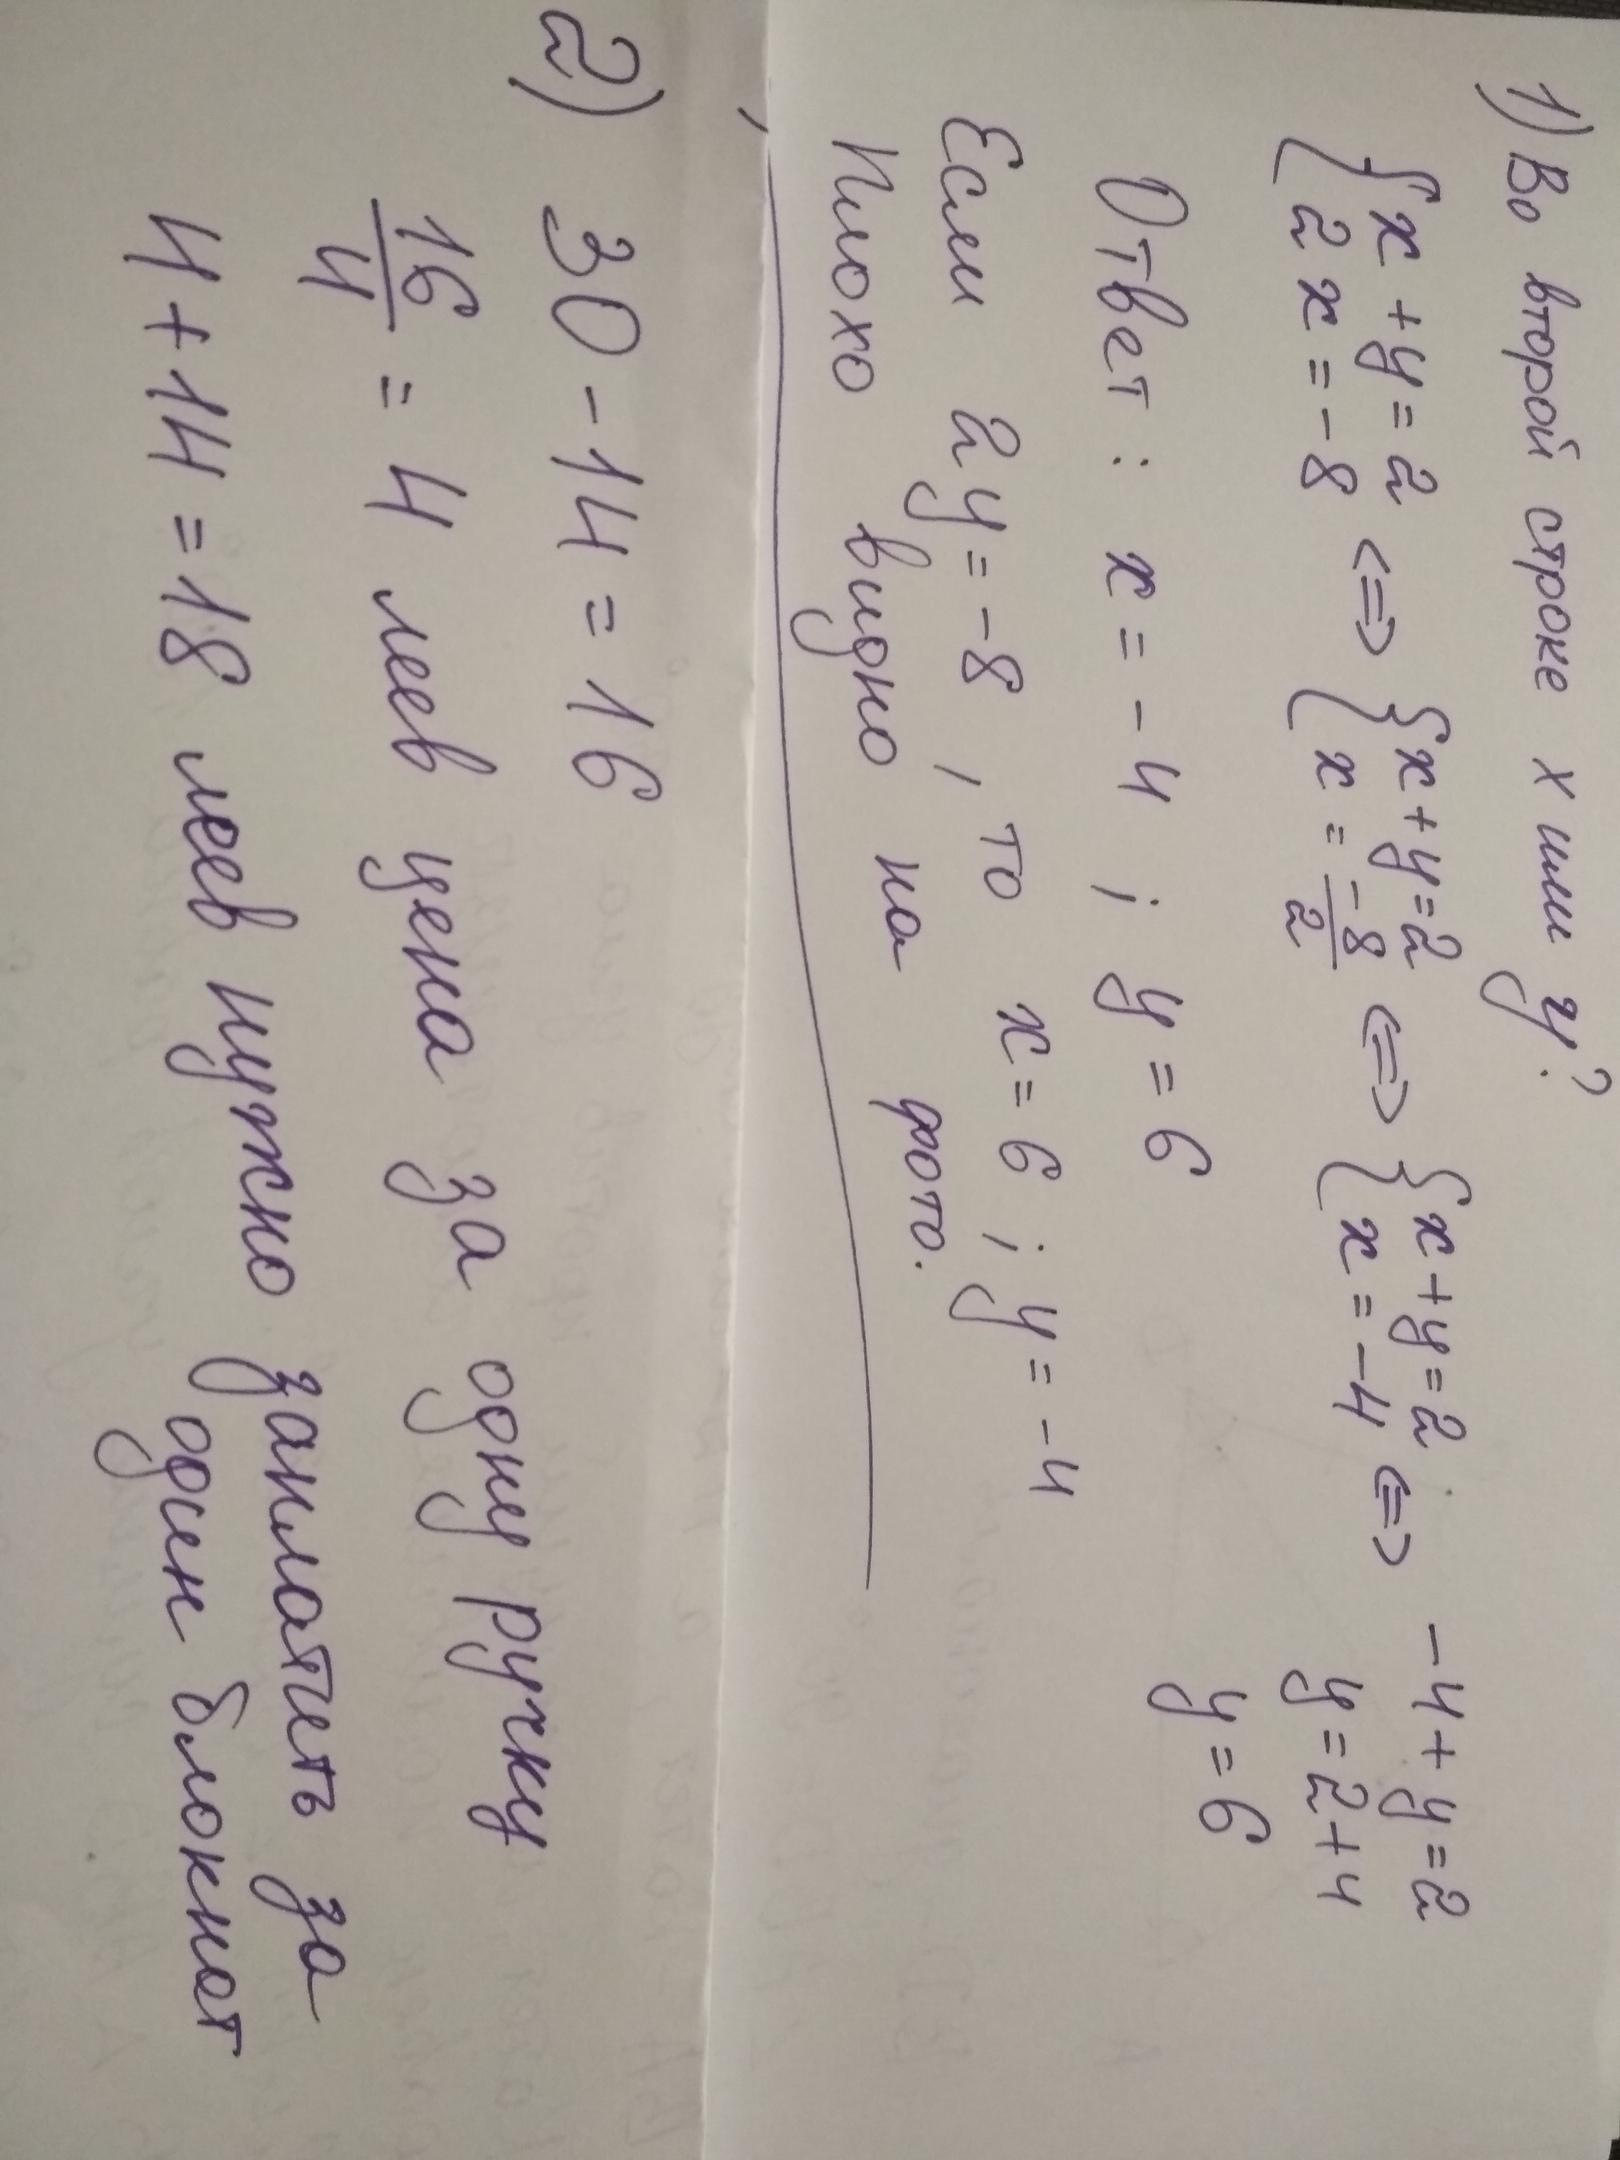 1) Во второй строке х или у?
{ x + y = 2 <=> { x + y = 2 <=> { x + y = 2 <=> -4 + y = 2
2x = -8 x = -8/2 x = -4 y = 2 + 4
y = 6
Ответ: x = -4 ; y = 6
Если 2y = -8, то x = 6 ; y = -4
Плохо видно на фото.
2) 30 - 14 = 16
16/4 = 4 лев цена за одну ручку
4 + 14 = 18 лев нужно заплатить за
один блокнот